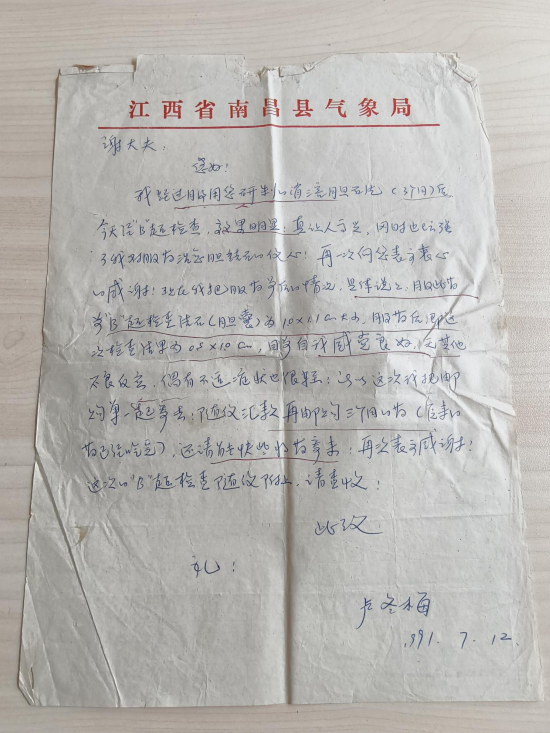 江西省南昌县气象局
谢大夫：
您好！
我经过服用您研制的消 胆石 （3个月）后
今天经"B"超检查，效果明显，真让人 ，同时也
了我对服药 胆 的信心！再一次向您表示衷心
的感谢！现在我把服药前后的情况，具体说 ，服 药
前"B"超检查结石（胆囊）为10×11cm大小，服药后 这
次检查结果为0.8×10cm，目前自我感觉良好，无其他
不良反应，偶有不适症状也很轻； 这次我把邮
购单一起寄去；随信汇款再邮购三个月的药（原来的
药已经吃完），还请 快些将药寄来，再次表示感谢！
这次的"B"超检查随信附上，请查收！
此致
礼！
卢冬梅
1991. 7. 12.